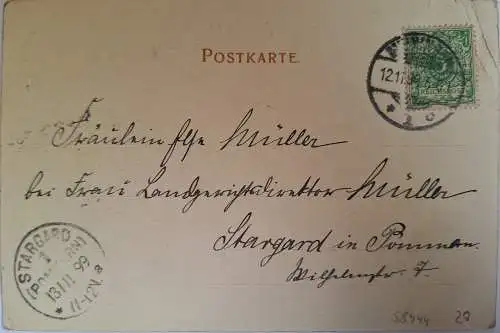 POSTKARTE.
12.11.99
Fräulein Else Müller
bei Frau Landgerichtsdirektor Müller
Stargard in Pommern
Wilhelmstr. 7.
STARGARD
1
13 11 99
11-12V.
58944 28